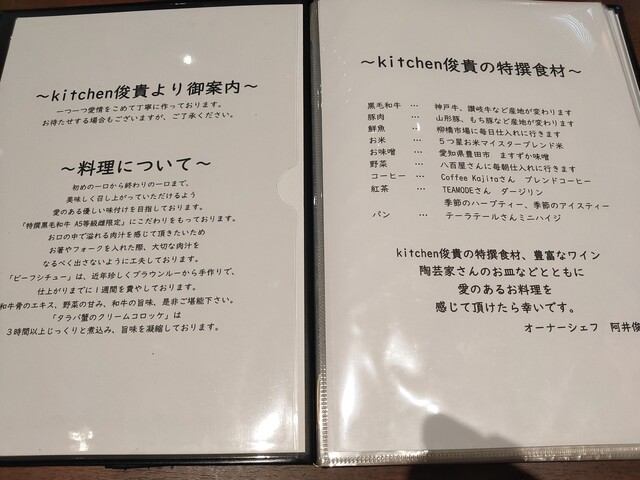 ～kitchen俊貴より御案内～
一つ一つ愛情をこめて丁寧に作っております。
お待たせする場合もございますが、ご了承ください。
～料理について～
初めの一口から終わりの一口まで、
美味しく召し上がっていただけるよう
愛のある優しい味付けを目指しております。
「特撰黒毛和牛 A5等級雌限定」にこだわりをもっております。
お口の中で溢れる肉汁を感じて頂きたいため
お箸やフォークを入れた際、大切な肉汁を
なるべく出さないように工夫しております。
「ビーフシチュー」は、近年珍しくブラウンルーから手作りで、
仕上がりまでに1週間を費やしております。
和牛骨のエキス、野菜の甘み、和牛の旨味、是非ご堪能下さい。
「タラバ蟹のクリームコロッケ」は
3時間以上じっくりと煮込み、旨味を凝縮しております。
～kitchen俊貴の特撰食材～
黒毛和牛 … 神戸牛、讃岐牛など産地が変わります
豚肉 … 山形豚、もち豚など産地が変わります
鮮魚 … 柳橋市場に毎日仕入れに行きます
お米 … 5つ星お米マイスターブレンド米
お味噌 … 愛知県豊田市 ますずか味噌
野菜 … 八百屋さんに毎朝仕入れに行きます
コーヒー … Coffee Kajitaさん ブレンドコーヒー
紅茶 … TEAMODEさん ダージリン
季節のハーブティー、季節のアイスティー
パン … テーラテールさんミニハイジ
kitchen俊貴の特撰食材、豊富なワイン
陶芸家さんのお皿などとともに
愛のあるお料理を
感じて頂けたら幸いです。
オーナーシェフ 阿井俊